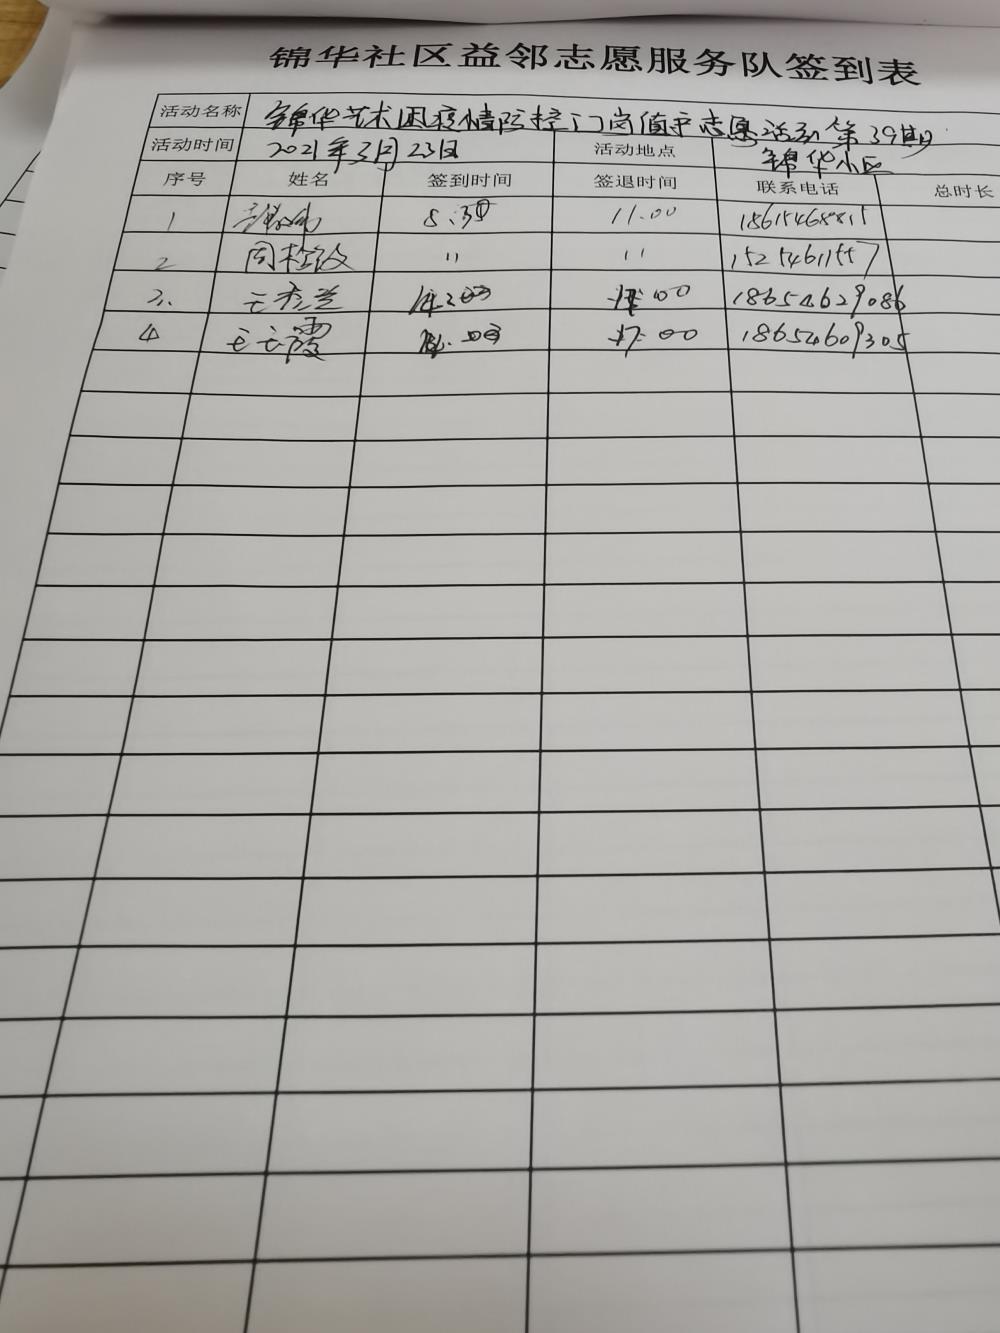 锦华社区益邻志愿服务队签到表
活动名称 锦华艺术团疫情防控门岗值守志愿活动第39期
活动时间 2021年3月23日 活动地点 锦华小区
序号 姓名 签到时间 签退时间 联系电话 总时长
1 8:30 11.00 18615468815
2 周 " " 15254611557
3. 王秀兰 14:00 17:00 18654629086
4 王云霞 14:00 17:00 18654609305